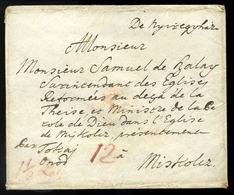 De Nyiregyház
Monsieur
Monsieur Samuel de Balay
Surintendant des Eglises
Reformées au deçà de la
Theise et Ministre de la Parole
de Dieu dans l'Eglise
de Miskolcz presentement
par Tokaj
Onod 12 à
Miskolcz